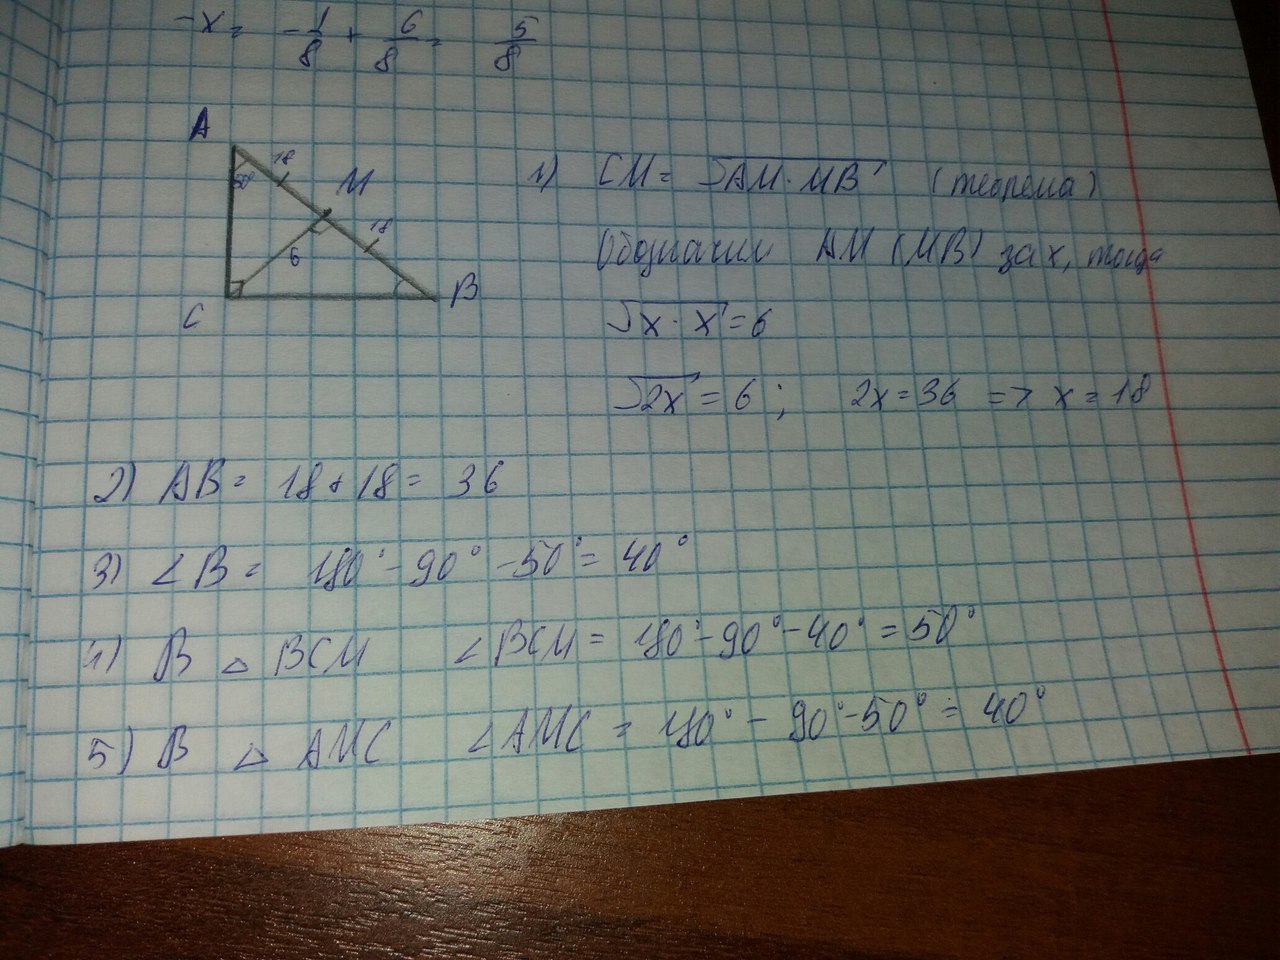 -x = -1/8 + 6/8 = 5/8
A
50°
18
M
18
6
C
B
1) CM = √AM·MB (теорема)
Обозначим AM (MB) за x, тогда
√x·x = 6
√2x = 6; 2x = 36 => x = 18
2) AB = 18 + 18 = 36
3) ∠B = 180° - 90° - 50° = 40°
4) В △ BCM ∠BCM = 180° - 90° - 40° = 50°
5) В △ AMC ∠AMC = 180° - 90° - 50° = 40°